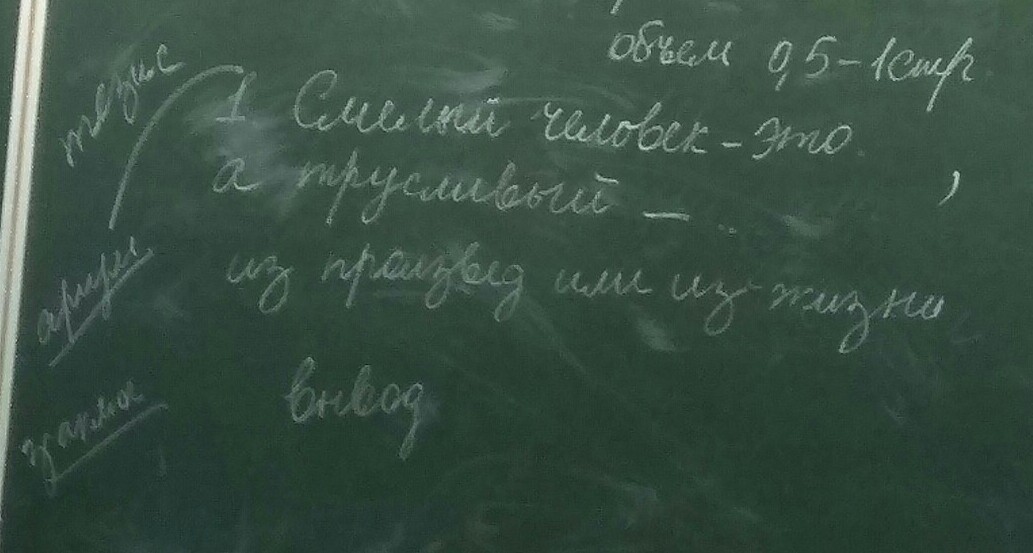 объем 0,5-1стр
тезис
1 Смелый человек - это ,
а трусливый - ..
аргум
из произвед или из жизни
заключ
вывод